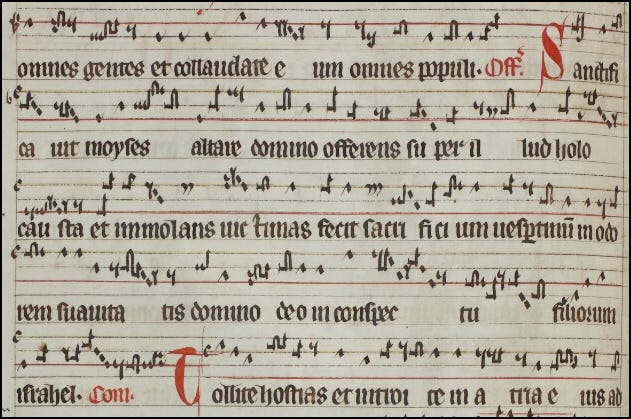 omnes gentes et collaudate e um omnes populi. Off. Sanctifi
ca uit moyses altare domino offerens su per il lud holo
cau sta et immolans uictimas fecit sacri fi ci um uespertinū in odo
rem suauita tis domino deo in conspec tu filiorum
israhel. Com. Tollite hostias et introi te in a tria e ius ad